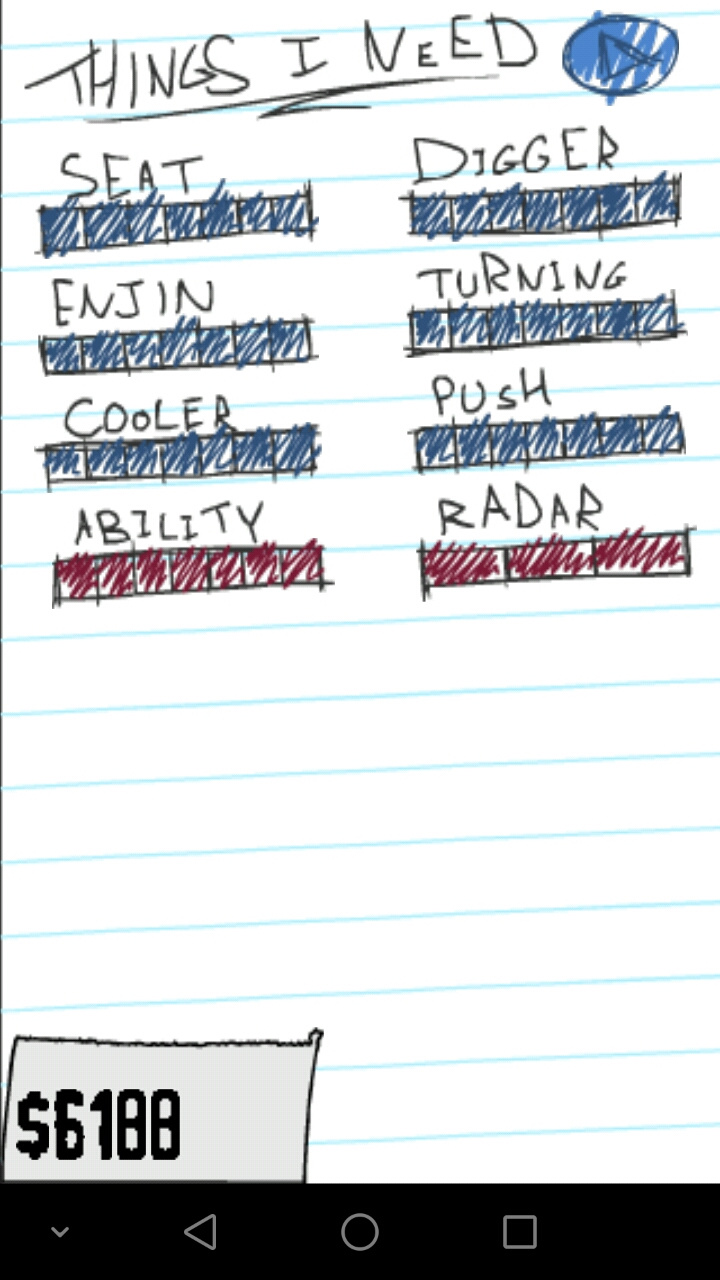 THINGS I NEED
SEAT
DIGGER
ENJIN
TURNING
COOLER
PUSH
ABILITY
RADAR
$6188